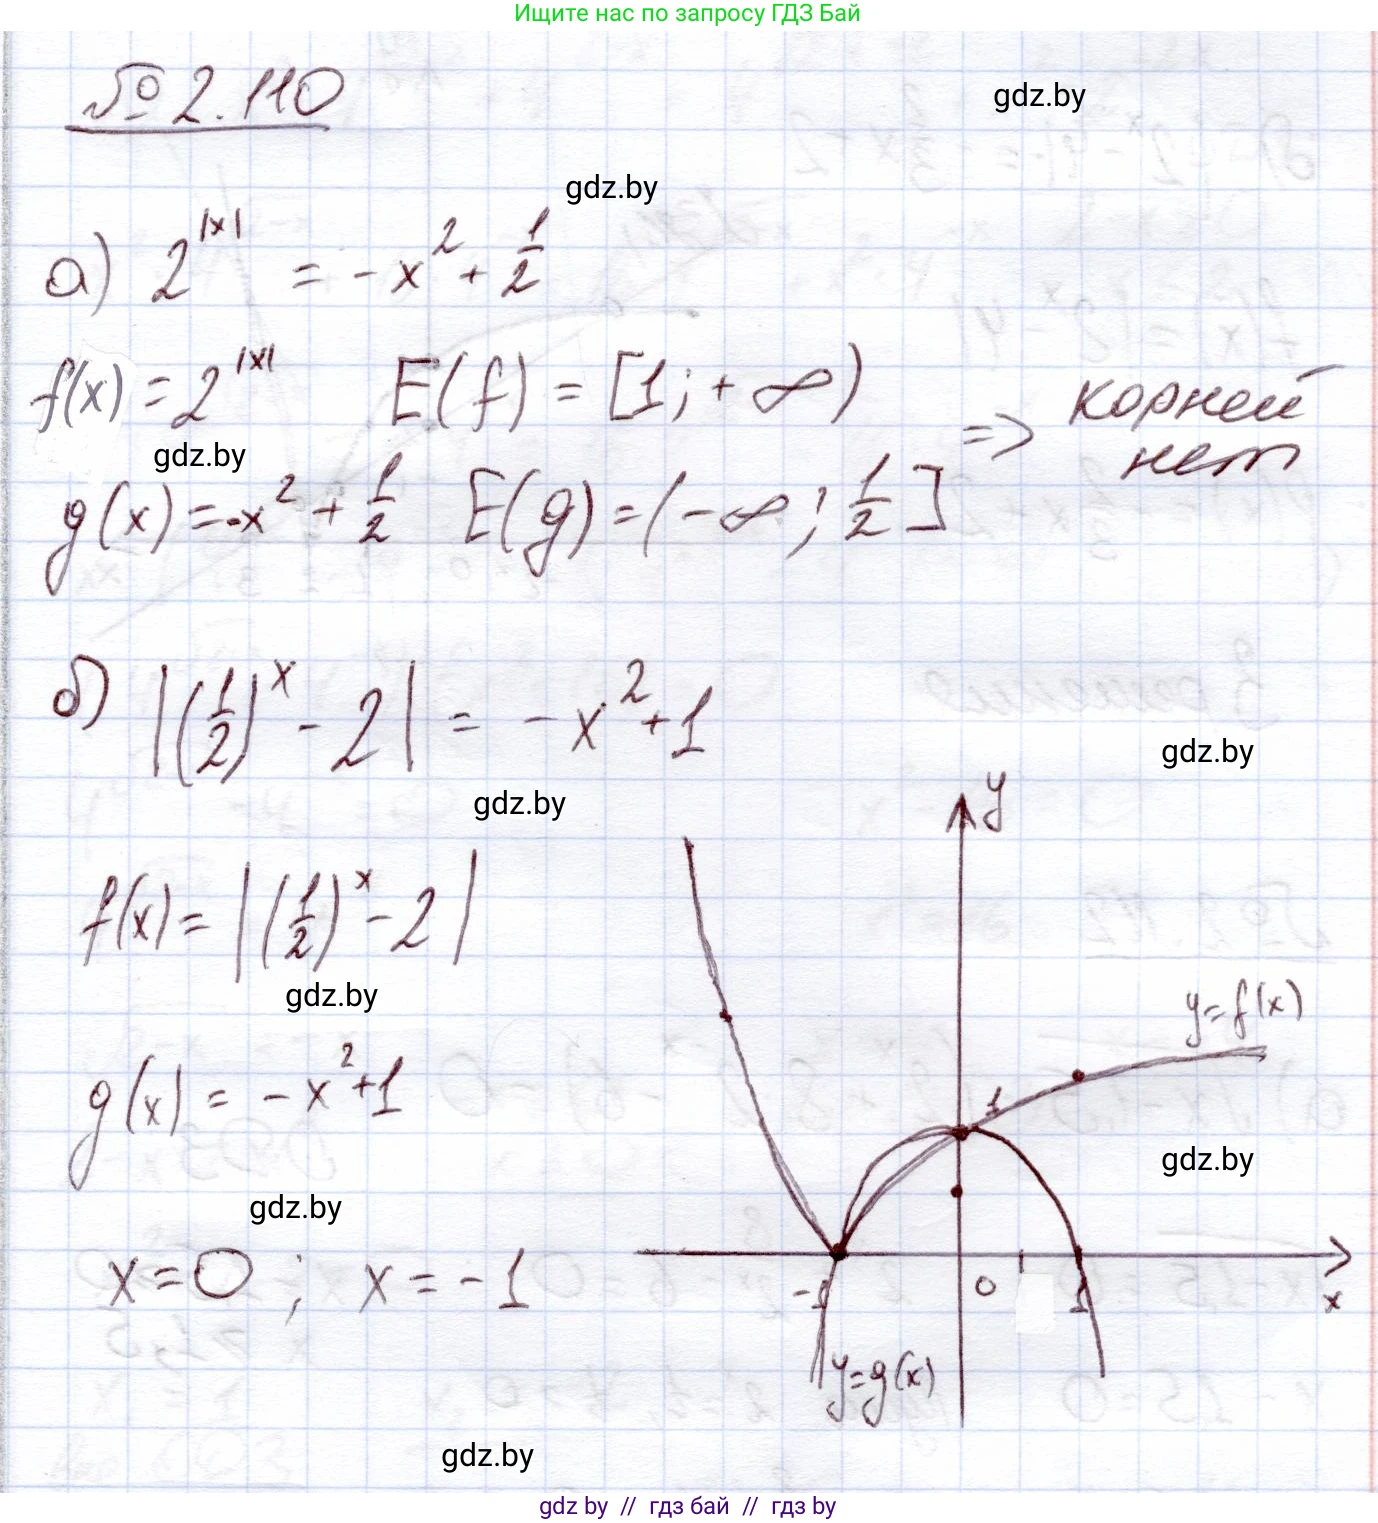 Ищите нас по запросу ГДЗ Бай
№ 2.110
gdz.by
gdz.by
а) 2^|x| = -x² + 1/2
f(x) = 2^|x| E(f) = [1; +∞)
=> корней нет
gdz.by
g(x) = -x² + 1/2 E(g) = (-∞; 1/2]
б) |(1/2)^x - 2| = -x² + 1
gdz.by
gdz.by
y
f(x) = |(1/2)^x - 2|
gdz.by
y=f(x)
g(x) = -x² + 1
1
gdz.by
gdz.by
x = 0 ; x = -1
-1 0 1 x
y=g(x)
gdz.by
gdz by // гдз бай // гдз by